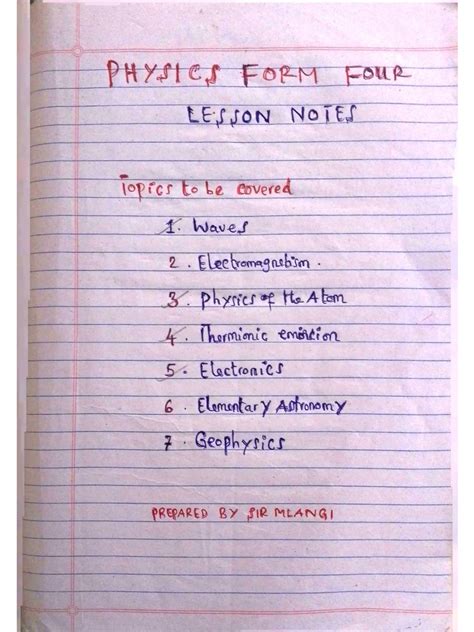 PHYSICS FORM FOUR
LESSON NOTES
Topics to be covered
1. Waves
2. Electromagnetism.
3. Physics of the Atom
4. Thermionic emission
5. Electronics
6. Elementary Astronomy
7. Geophysics
PREPARED BY SIR MLANGI